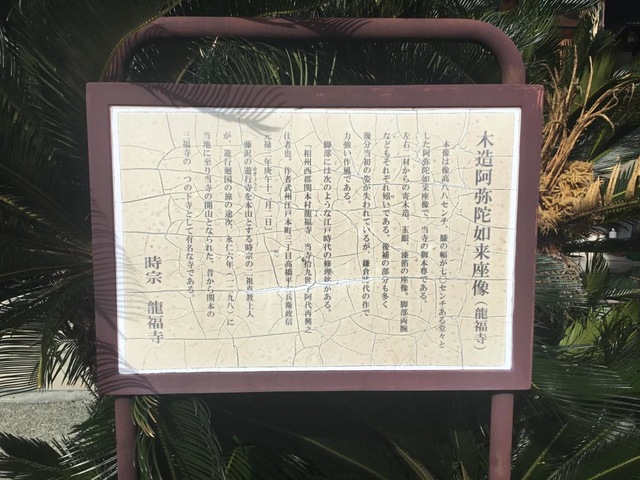 木造阿弥陀如来座像（龍福寺）
本像は像高八八センチ 膝の幅が七〇センチある堂々と
した阿弥陀如来座像で、当寺の御本尊である。
左右二材からの寄木造、玉眼、漆箔の座像、脚部両腕
などもそれぞれ矧いである。後補の部分も多く
幾分当初の姿が失われているが、鎌倉時代の作で
力強い作風である。
脚部には次のような江戸時代の修理銘がある。
相州西郡関本村龍福寺、当寺 九世 阿代再興之
仕者也、作者武州江戸本町三丁目高橋平 兵衛政信
元禄三年庚午十一月二日
藤沢の遊行寺を本山とする時宗の二祖真教上人
が、遊行廻国の旅の途次、永仁六年（一二九八）に
当地に至り当寺の開山となられた。昔から関本の
三福寺の一つの下寺として有名な寺である。
時宗 龍福寺